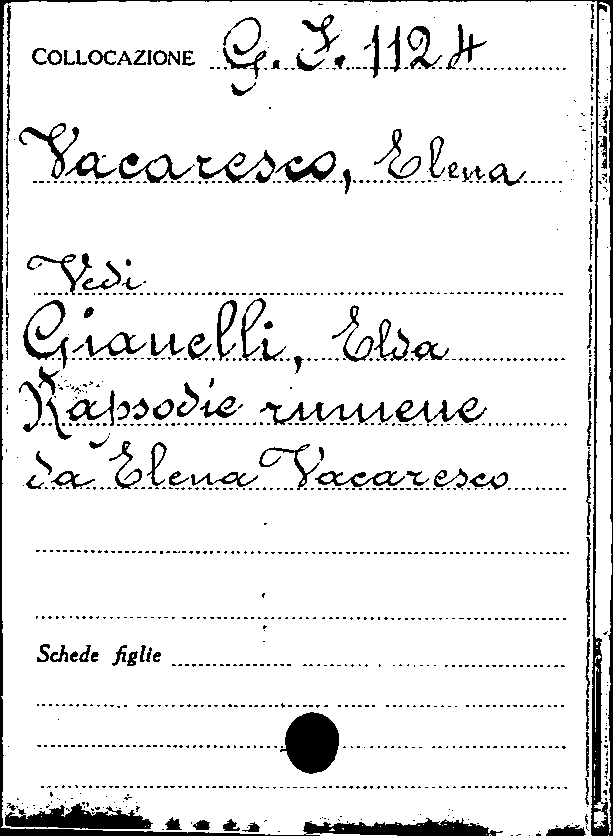 COLLOCAZIONE G. F. 1124
Vacaresco, Elena
Vedi
Gianelli, Elsa
Rapsodie rumene
da Elena Vacaresco
Schede figlie